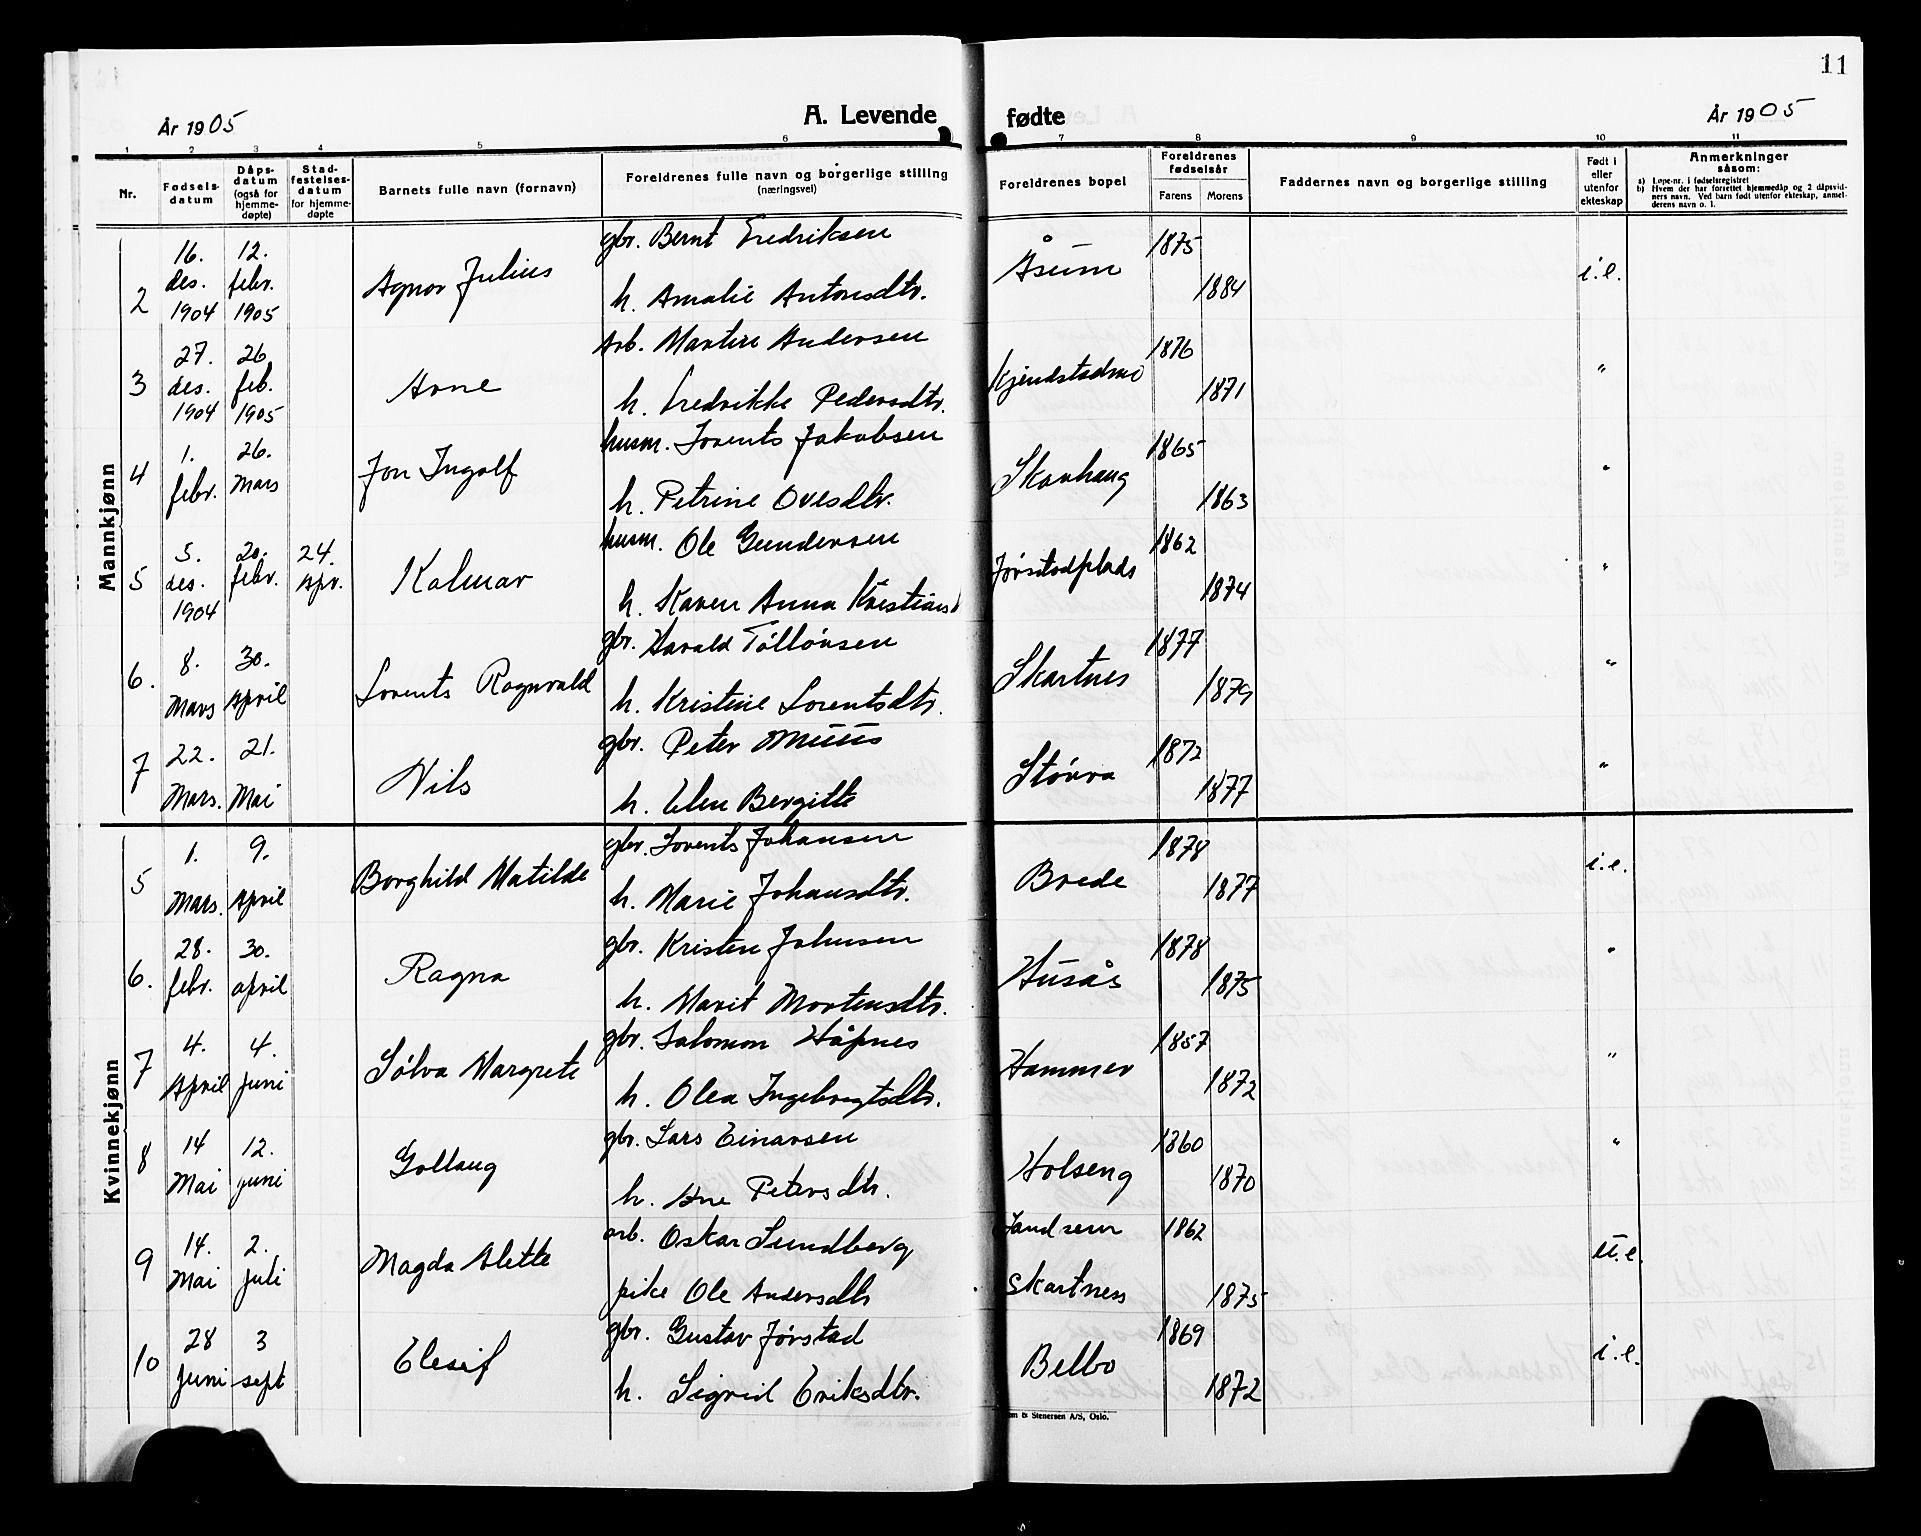 11
År 1905
A. Levende
fødte
År 1905
1 2 3 4 5 6 7 8 9 10 11
Nr.
Fødsels-
datum
Dåps-
datum
(også for
hjemme-
døpte)
Stad-
festelses-
datum
for hjemme-
døpte
Barnets fulle navn (fornavn)
Foreldrenes fulle navn og borgerlige stilling
(næringsvei)
Foreldrenes bopel
Foreldrenes
fødselsår
Farens Morens
Faddernes navn og borgerlige stilling
Født i
eller
utenfor
ekteskap
Anmerkninger
såsom:
a) Løpe-nr. i fødselsregistret
b) Hvem der har forrettet hjemmedåp og 2 dåpsvid-
ners navn. Ved barn født utenfor ekteskap, anmel-
derens navn o. l.
Mannkjønn
2
16.
des.
1904
12.
febr.
1905
Agnor Julius
gbr. Bernt Fredriksen
h. Amalie Antonsdtr.
Åsum
1875
1884
i.e.
3
27.
des.
1904
26
feb.
1905
Arne
Arb. Martin Andersen
h. Fredrikke Pedersdtr.
Kjendstadmo
1876
1871
"
4
1.
febr.
26.
Mars
Jon Ingolf
husm. Lorents Jakobsen
h. Petrine Ovesdtr.
Skavhaug
1865
1863
"
5
5.
des.
1904
20.
febr.
24.
Apr.
Kalmar
husm. Ole Gundersen
h. Karen Anna Kristians
Jørstadplads
1862
1874
"
6.
8.
Mars
30.
April
Lorents Ragnvald
gbr. Harald Tollörsen
h. Kristine Lorentsdtr.
Skartnes
1877
1879
"
7
22.
Mars.
21.
Mai
Nils
gbr. Peter Muus
h. Elen Bergitte
Størra
1872
1877
"
Kvinnekjønn
5
1.
Mars.
9.
April
Borghild Matilde
gbr. Lorents Johansen
h. Marie Johansdtr.
Brede
1878
1877
i.e.
6.
28.
febr.
30.
april
Ragna
gbr. Kristen Johnsen
h. Marit Mortensdtr.
Husås
1878
1875
"
7
4.
April
4.
juni
Sølva Margrete
gbr. Salomon Håpnes
h. Olea Ingebrigtsdtr.
Hammer
1857
1872
"
8
14
Mai
12.
juni
Gollaug
gbr. Lars Einarsen
h. Ane Petersdtr.
Holseng
1860
1870
"
9
14.
Mai
2.
juli
Magda Alette
arb. Oskar Sundberg
pike Ole Andersdtr
Sandsem
Skartness
1862
1875
u.e.
10
28
juni
3
sept
Elesif
gbr. Gustav Jørstad
h. Sigrid Eriksdtr.
Belbo
1869
1872
i.e.
& Stenersen A/S, Oslo.